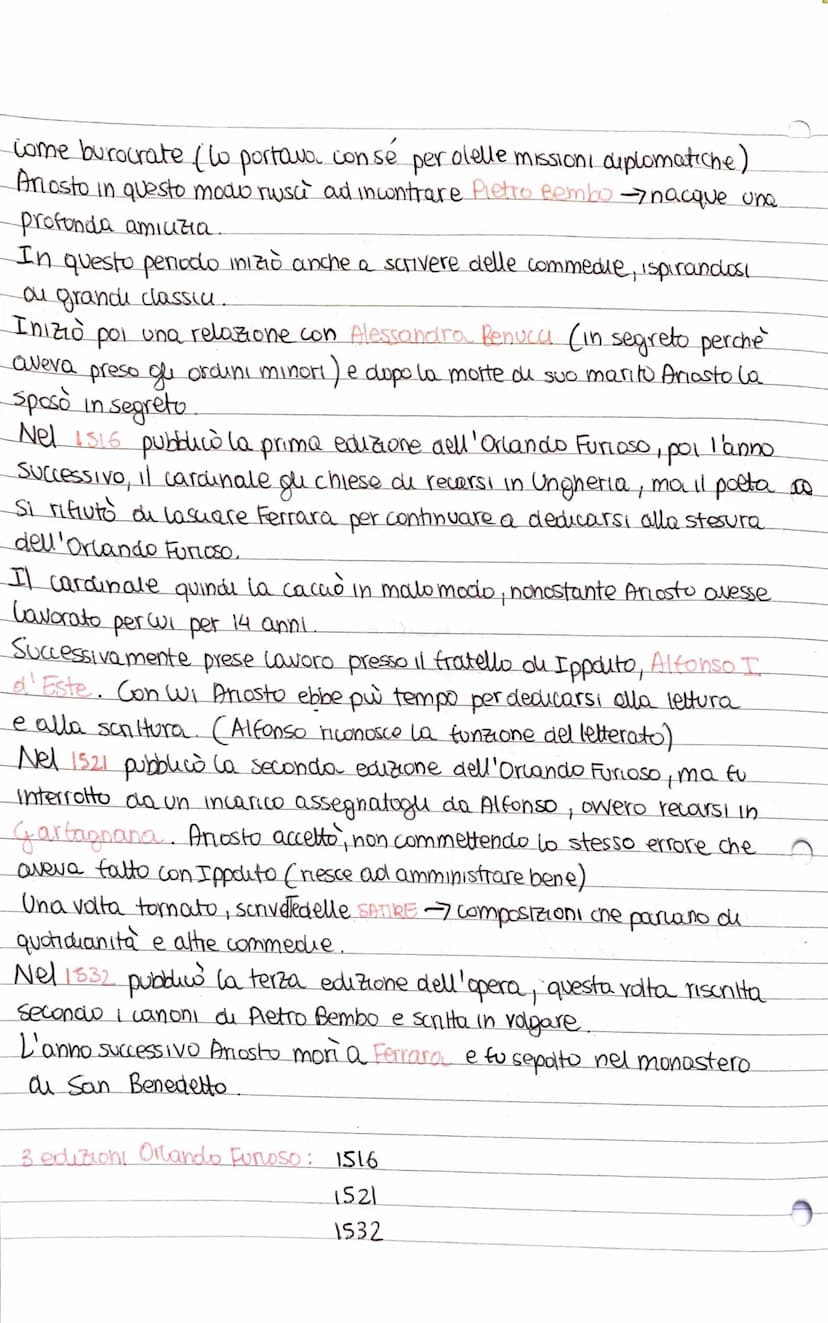 come burocrate (lo portava con sé per delle missioni diplomatiche)
Ariosto in questo modo riuscì ad incontrare Pietro Bembo → nacque una
profonda amicizia.
In questo periodo iniziò anche a scrivere delle commedie, ispirandosi
ai grandi classici.
Iniziò poi una relazione con Alessandra Benucci (in segreto perchè
aveva preso gli ordini minori) e dopo la morte di suo marito Ariosto la
sposò in segreto.
Nel 1516 pubblicò la prima edizione dell'Orlando Furioso, poi l'anno
successivo, il cardinale gli chiese di recarsi in Ungheria, ma il poeta
si rifiutò di lasciare Ferrara per continuare a dedicarsi alla stesura
dell'Orlando Furioso.
Il cardinale quindi la cacciò in malo modo, nonostante Ariosto avesse
lavorato per lui per 14 anni.
Successivamente prese lavoro presso il fratello di Ippolito, Alfonso I
d'Este. Con lui Ariosto ebbe più tempo per dedicarsi alla lettura
e alla scrittura. (Alfonso riconosce la funzione del letterato)
Nel 1521 pubblicò la seconda edizione dell'Orlando Furioso, ma fu
interrotto da un incarico assegnatogli da Alfonso, ovvero recarsi in
Garfagnana. Ariosto accettò, non commettendo lo stesso errore che
aveva fatto con Ippolito (riesce ad amministrare bene)
Una volta tornato, delle SATIRE → composizioni che parlano di
quotidianità e altre commedie.
Nel 1532 pubblicò la terza edizione dell'opera, questa volta riscritta
secondo i canoni di Pietro Bembo e scritta in volgare.
L'anno successivo Ariosto morì a Ferrara e fu sepolto nel monastero
di San Benedetto.
3 edizioni Orlando Furioso: 1516
1521
1532